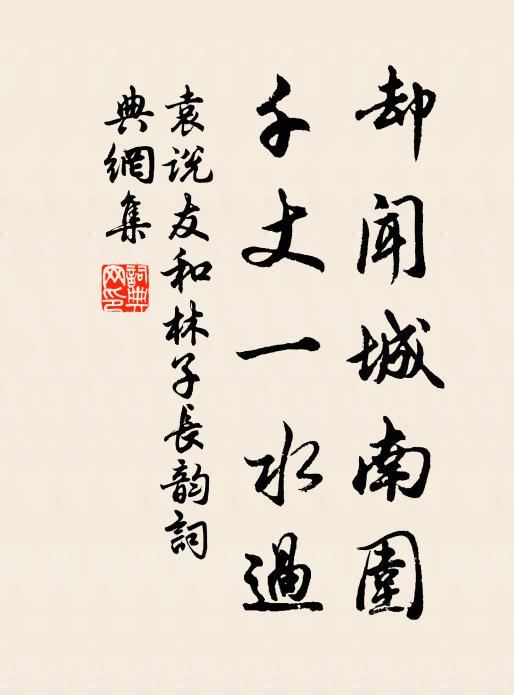 却闻城南围
千丈一水過
袁说友和林子长韵詞
典網集
詞典
网印